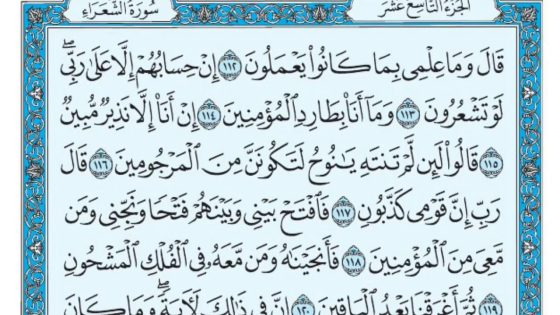 سُورَةُ الشُّعَرَاءِ
الجُزْءُ التَّاسِعَ عَشَرَ
قَالَ وَمَا عِلْمِى بِمَا كَانُوا۟ يَعْمَلُونَ ١١٢ إِنْ حِسَابُهُمْ إِلَّا عَلَىٰ رَبِّىۖ
لَوْ تَشْعُرُونَ ١١٣ وَمَآ أَنَا۠ بِطَارِدِ ٱلْمُؤْمِنِينَ ١١٤ إِنْ أَنَا۠ إِلَّا نَذِيرٌ مُّبِينٌ
١١٥ قَالُوا۟ لَئِن لَّمْ تَنتَهِ يَٰنُوحُ لَتَكُونَنَّ مِنَ ٱلْمَرْجُومِينَ ١١٦ قَالَ
رَبِّ إِنَّ قَوْمِى كَذَّبُونِ ١١٧ فَٱفْتَحْ بَيْنِى وَبَيْنَهُمْ فَتْحًا وَنَجِّنِى وَمَن
مَّعِىَ مِنَ ٱلْمُؤْمِنِينَ ١١٨ فَأَنجَيْنَٰهُ وَمَن مَّعَهُۥ فِى ٱلْفُلْكِ ٱلْمَشْحُونِ
١١٩ ثُمَّ أَغْرَقْنَا بَعْدُ ٱلْبَاقِينَ ١٢٠ إِنَّ فِى ذَٰلِكَ لَءَايَةًۖ وَمَا كَانَ